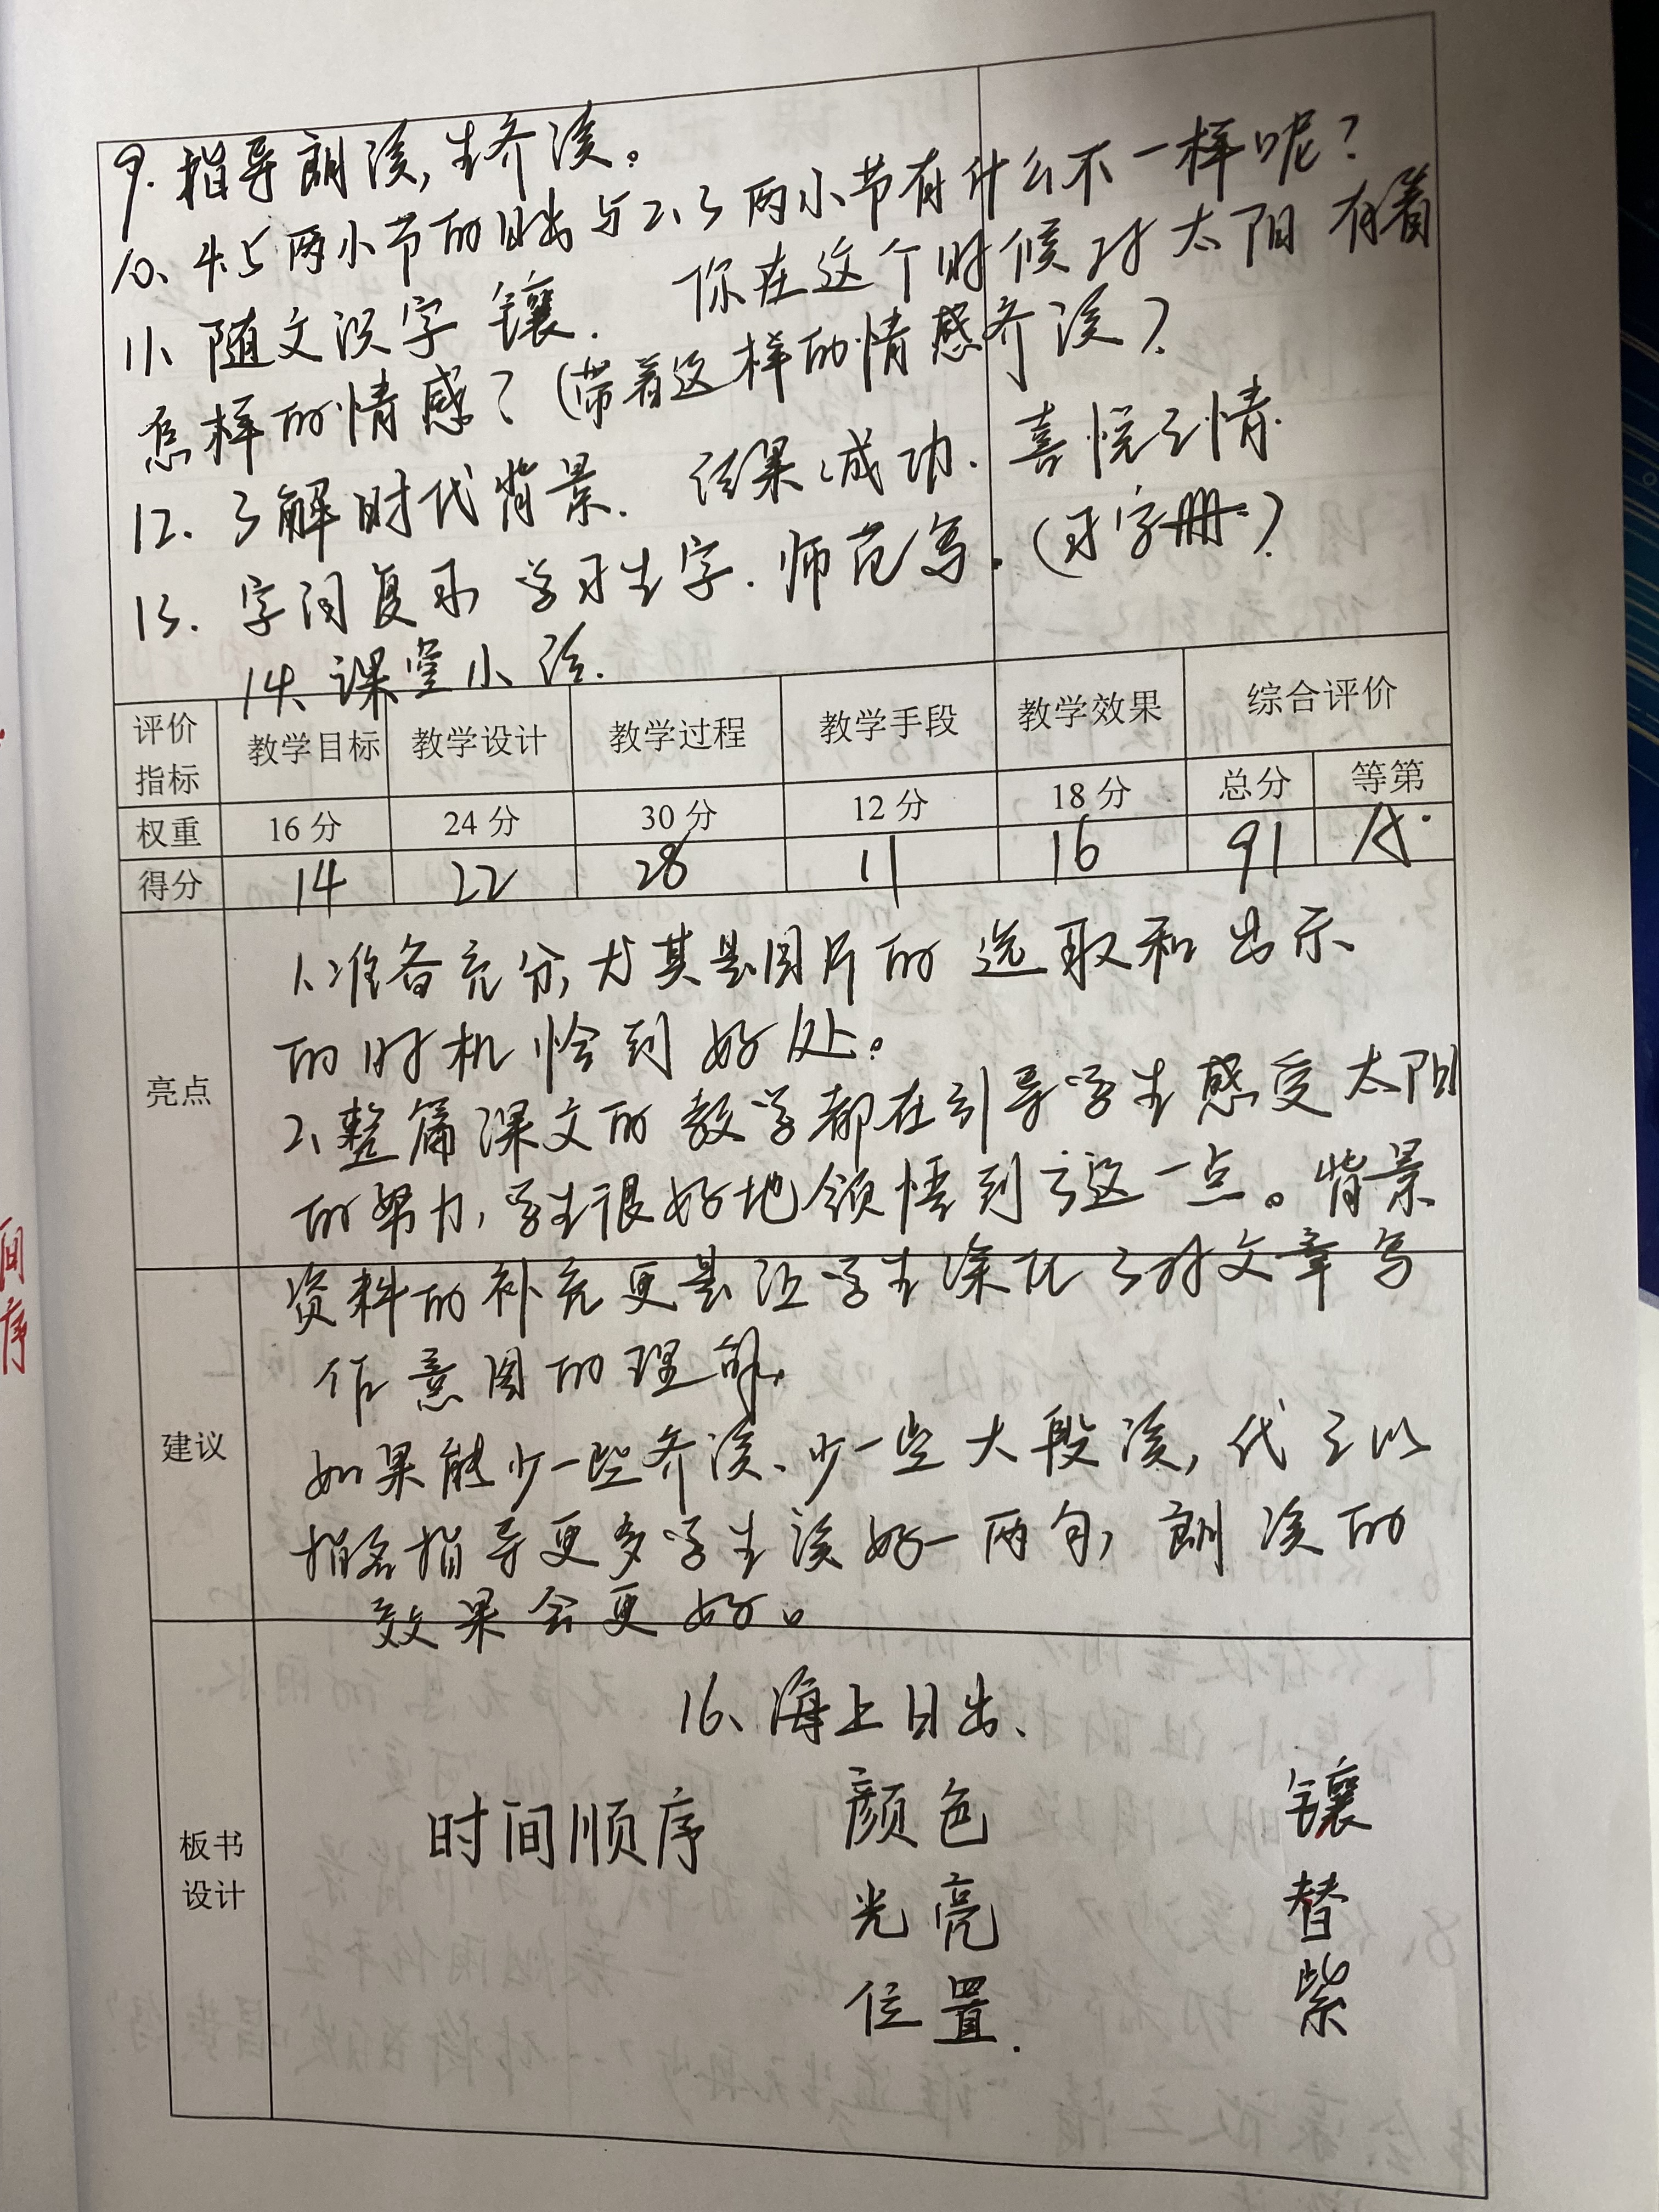 9. 指导朗读，生齐读。
10、4.5两小节的日出与2、3两小节有什么不一样呢？
11、随文识字 镶. 你在这个时候对太阳有着
怎样的情感？（带着这样的情感齐读）
12. 了解时代背景. 结果:成功. 喜悦之情.
13. 字词复习 学习生字. 师范写. (习字册)
14、课堂小结.
评价指标 教学目标 教学设计 教学过程 教学手段 教学效果 综合评价
总分 等第
权重 16分 24分 30分 12分 18分
得分 14 22 28 11 16 91 A.
亮点
1、准备充分,尤其是图片的选取和出示
的时机恰到好处。
2、整篇课文的教学都在引导学生感受太阳
的努力,学生很好地领悟到了这一点。背景
资料的补充更是让学生深化了对文章写
作意图的理解.
建议
如果能少一些齐读、少一些大段读,代之以
指名指导更多学生读好一两句,朗读的
效果会更好。
板书设计
16、海上日出、
时间顺序 颜色 镶
光亮 替
位置. 紫
间
序